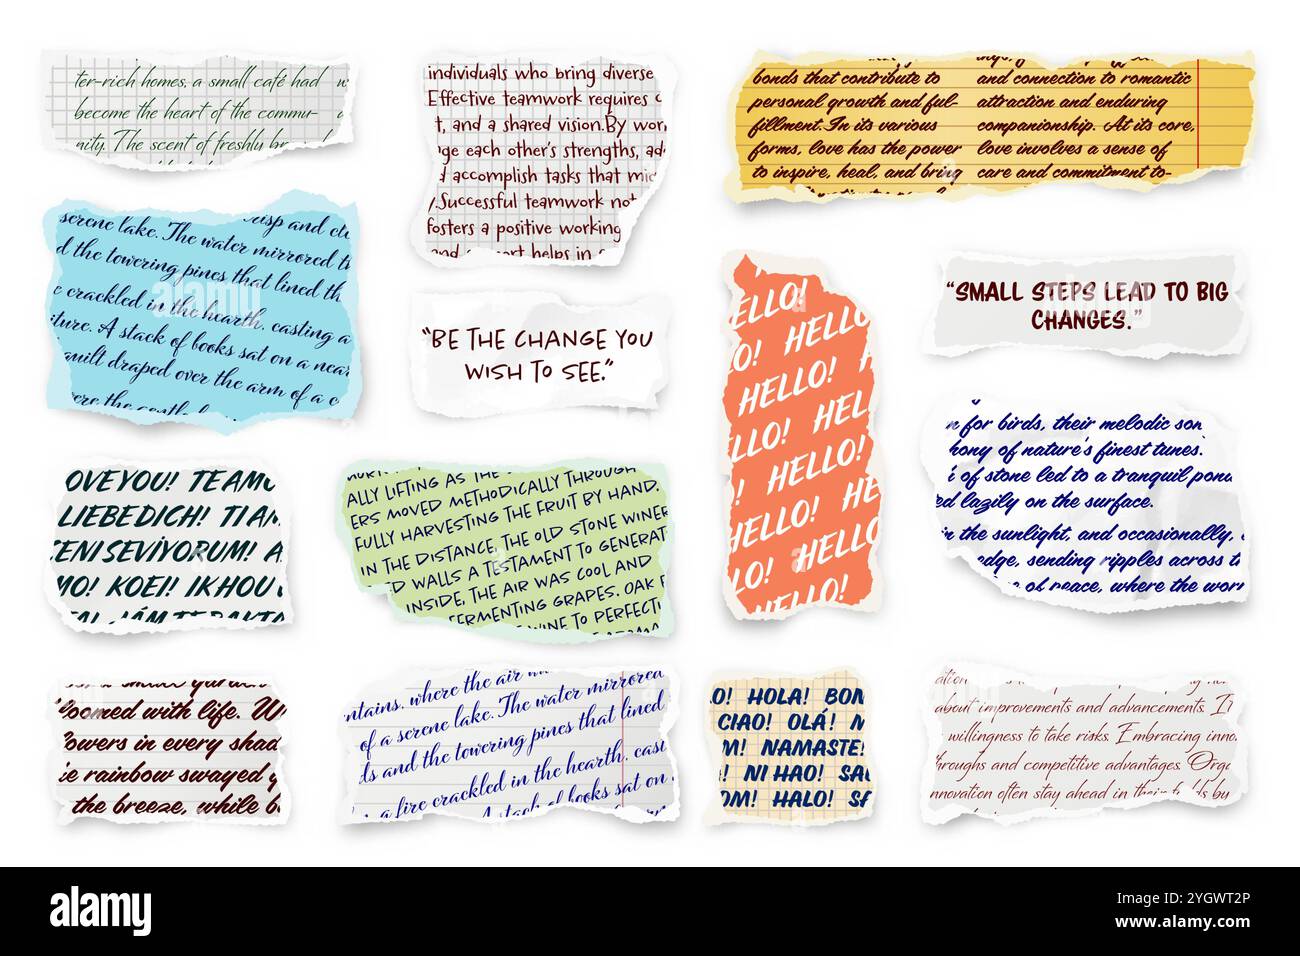 ter-rich homes, a small café had
become the heart of the commu-
nity. The scent of freshly
individuals who bring diverse
Effective teamwork requires
t, and a shared vision.By wor
ge each other's strengths, ad
d accomplish tasks that mi
.Successful teamwork not
fosters a positive working
helps in
bonds that contribute to
personal growth and ful-
fillment.In its various
forms, love has the power
to inspire, heal, and bring
and connection to romantic
attraction and enduring
companionship. At its core,
love involves a sense of
care and commitment to-
isp and
serene lake. The water mirrored t
d the towering pines that lined th
e crackled in the hearth, casting a
ture. A stack of books sat on a near
quilt draped over the arm of a c
"BE THE CHANGE YOU
WISH TO SEE."
ELLO!
HELLO
O! HELLO!
HELLO!
LLO! HELL
HELLO!
! HELLO! HE
HELLO!
LO! HELLO
HELLO!
"SMALL STEPS LEAD TO BIG
CHANGES."
n for birds, their melodic son
hony of nature's finest tunes.
of stone led to a tranquil pond
ed lazily on the surface.
in the sunlight, and occasionally,
edge, sending ripples across t
of peace, where the wor
OVEYOU! TEAMO
LIEBEDICH! TIAM
ENISEVİYORUM! A
MO! KOEI! IKHOU
ALLY LIFTING AS THE
ERS MOVED METHODICALLY THROUGH
FULLY HARVESTING THE FRUIT BY HAND.
IN THE DISTANCE, THE OLD STONE WINER
D WALLS A TESTAMENT TO GENERAT
INSIDE, THE AIR WAS COOL AND
FERMENTING GRAPES. OAK
WINE TO PERFECT
loomed with life. W
lowers in every shad
e rainbow swayed
the breeze, while b
ntains, where the air
of a serene lake. The water mirrored
ds and the towering pines that lined
a fire crackled in the hearth, cast
A stack of books sat on
O! HOLA! BON
CIAO! OLÁ! N
M! NAMASTE!
! NI HAO! SA
OM! HALO! S
about improvements and advancements. I
willingness to take risks. Embracing inno
hroughs and competitive advantages. Orga
nnovation often stay ahead in their fields by
alamy
alamy
Image ID: 2YGWT2P
www.alamy.com